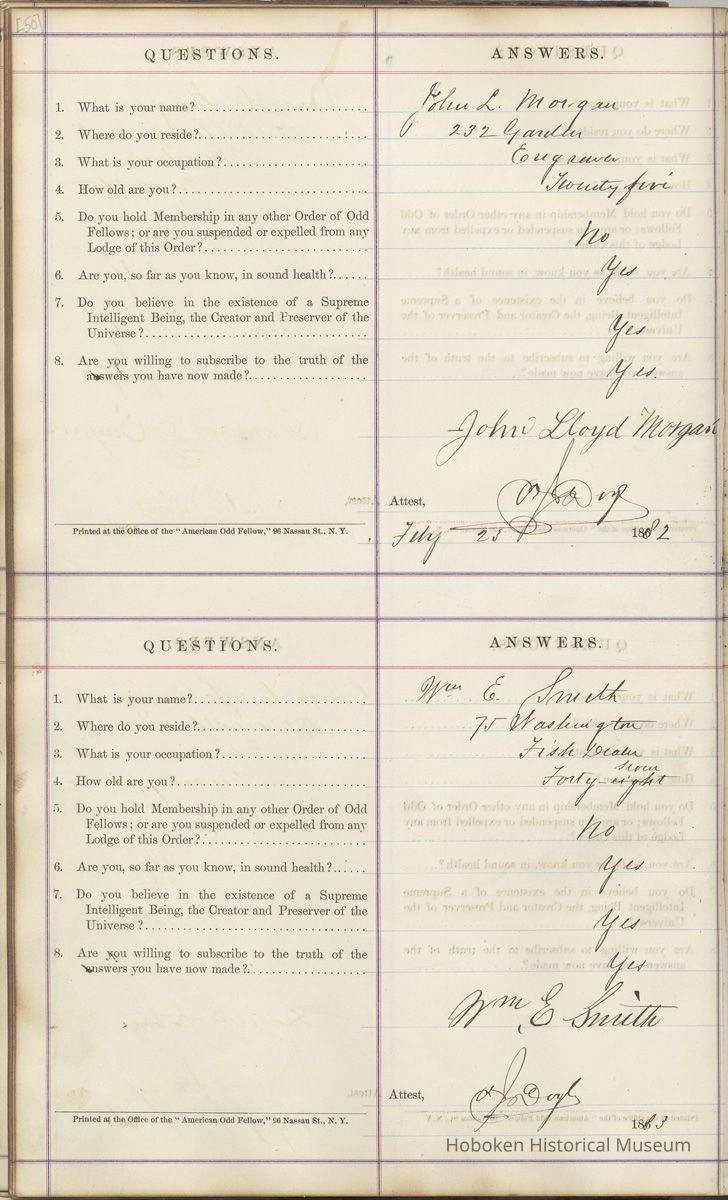 [50]
QUESTIONS. ANSWERS.
1. What is your name?........................... John L. Morgan
2. Where do you reside?........................ 232 Garden
3. What is your occupation?....................... Engraver
4. How old are you?.............................. Twenty five
5. Do you hold Membership in any other Order of Odd
Fellows; or are you suspended or expelled from any
Lodge of this Order?.......................... No
6. Are you, so far as you know, in sound health?...... Yes
7. Do you believe in the existence of a Supreme
Intelligent Being, the Creator and Preserver of the
Universe?................................... Yes
8. Are you willing to subscribe to the truth of the
answers you have now made?................... Yes.
John Lloyd Morgan
Attest,
Printed at the Office of the "American Odd Fellow," 96 Nassau St., N. Y.
Feby 23 1882
QUESTIONS. ANSWERS.
1. What is your name?........................... Wm E. Smith
2. Where do you reside?........................ 75 Washington
3. What is your occupation?....................... Fish Dealer
4. How old are you?.............................. Forty-eight seven
5. Do you hold Membership in any other Order of Odd
Fellows; or are you suspended or expelled from any
Lodge of this Order?.......................... No
6. Are you, so far as you know, in sound health?...... Yes
7. Do you believe in the existence of a Supreme
Intelligent Being, the Creator and Preserver of the
Universe?................................... Yes
8. Are you willing to subscribe to the truth of the
answers you have now made?................... Yes
Wm E Smith
Attest,
Printed at the Office of the "American Odd Fellow," 96 Nassau St., N. Y.
Hoboken Historical Museum